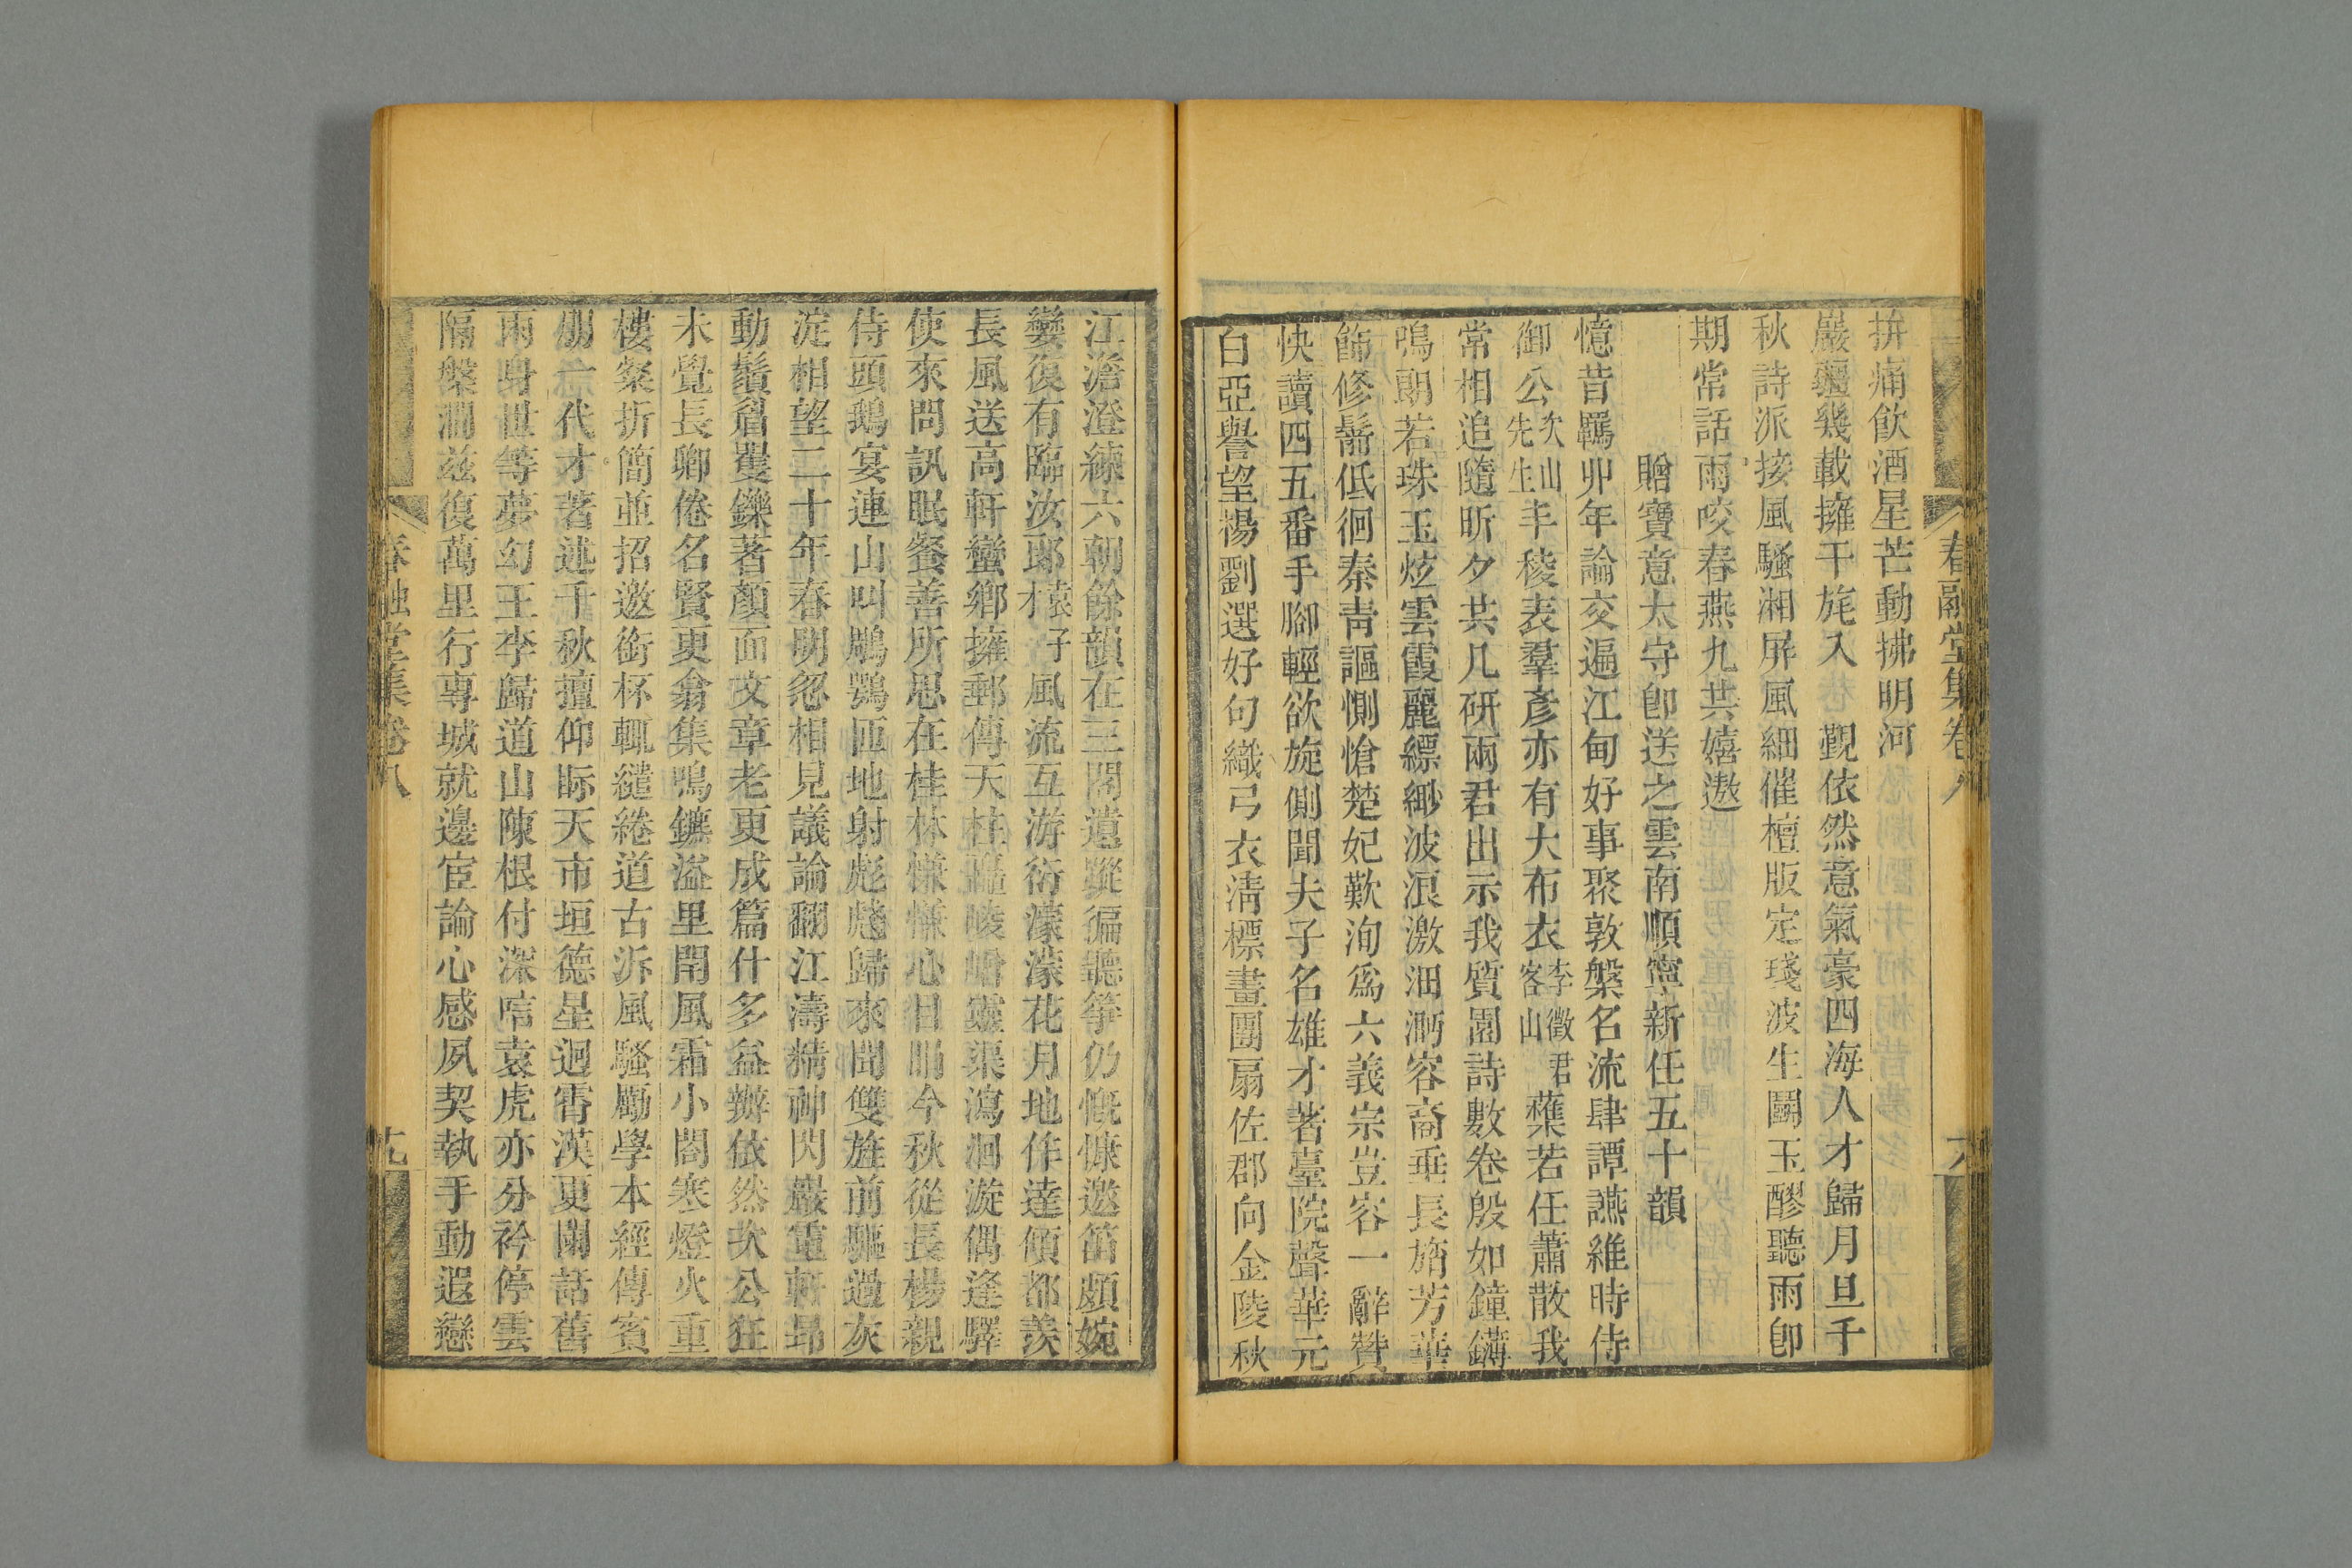 春融堂集卷八
拚痛飲酒星芒動拂明河
巖疆幾載擁干旄入覲依然意氣豪四海人才歸月旦千
秋詩派接風騷湘屏風細催檀版定琖波生鬭玉醪聽雨卽
期常話雨咬春燕九共嬉遨
贈寶意太守卽送之雲南順寧新任五十韻
憶昔羈丱年論交遍江甸好事聚敦槃名流肆譚讌維時侍
御公次山先生丰稜表羣彥亦有大布衣李徵君客山蘀若任蕭散我
常相追隨昕夕共几研兩君出示我質園詩數卷殷如鐘鏞
鳴朗若珠玉炫雲霞麗縹緲波浪激洄沔容裔垂長旓芳華
飾修鬋低徊秦靑謳惻愴楚妃歎洵爲六義宗豈容一辭贊
快讀四五番手腳輕欲旋側聞夫子名雄才著臺院聲華元
白亞譽望楊劉選好句織弓衣淸標畫團扇佐郡向金陵秋
江澹澄練六朝餘韻在三閣遺蹤徧聽筝仍慨慷邀笛頗婉
孌復有臨汝郎榬子風流互游衍濛濛花月地作達傾都羨
長風送高軒蠻鄉擁郵傳天柱臨崚嶒靈渠瀉洄漩偶逢驛
使來問訊眠餐善所思在桂林慊慊心目睊今秋從長楊親
侍頭鵝宴連山叫鵰鶚匝地射彪虥歸來聞雙旌前驅過灰
淀相望二十年春明忽相見議論翻江濤精神閃巖電軒昂
動鬚眉矍鑠著顏面文章老更成篇什多益辦依然次公狂
未覺長卿倦名賢更翕集鳴鑣溢里閈風霜小閤寒燈火重
樓粲折簡並招邀銜杯輒繾綣道古泝風騷勵學本經傳賓
朋一代才著述千秋擅仰眎天市垣德星迥霄漢更闌話舊
雨身世等夢幻王李歸道山陳根付深唁袁虎亦分衿停雲
隔槃澗玆復萬里行專城就邊宦論心感夙契執手動遐戀
春融堂集卷八